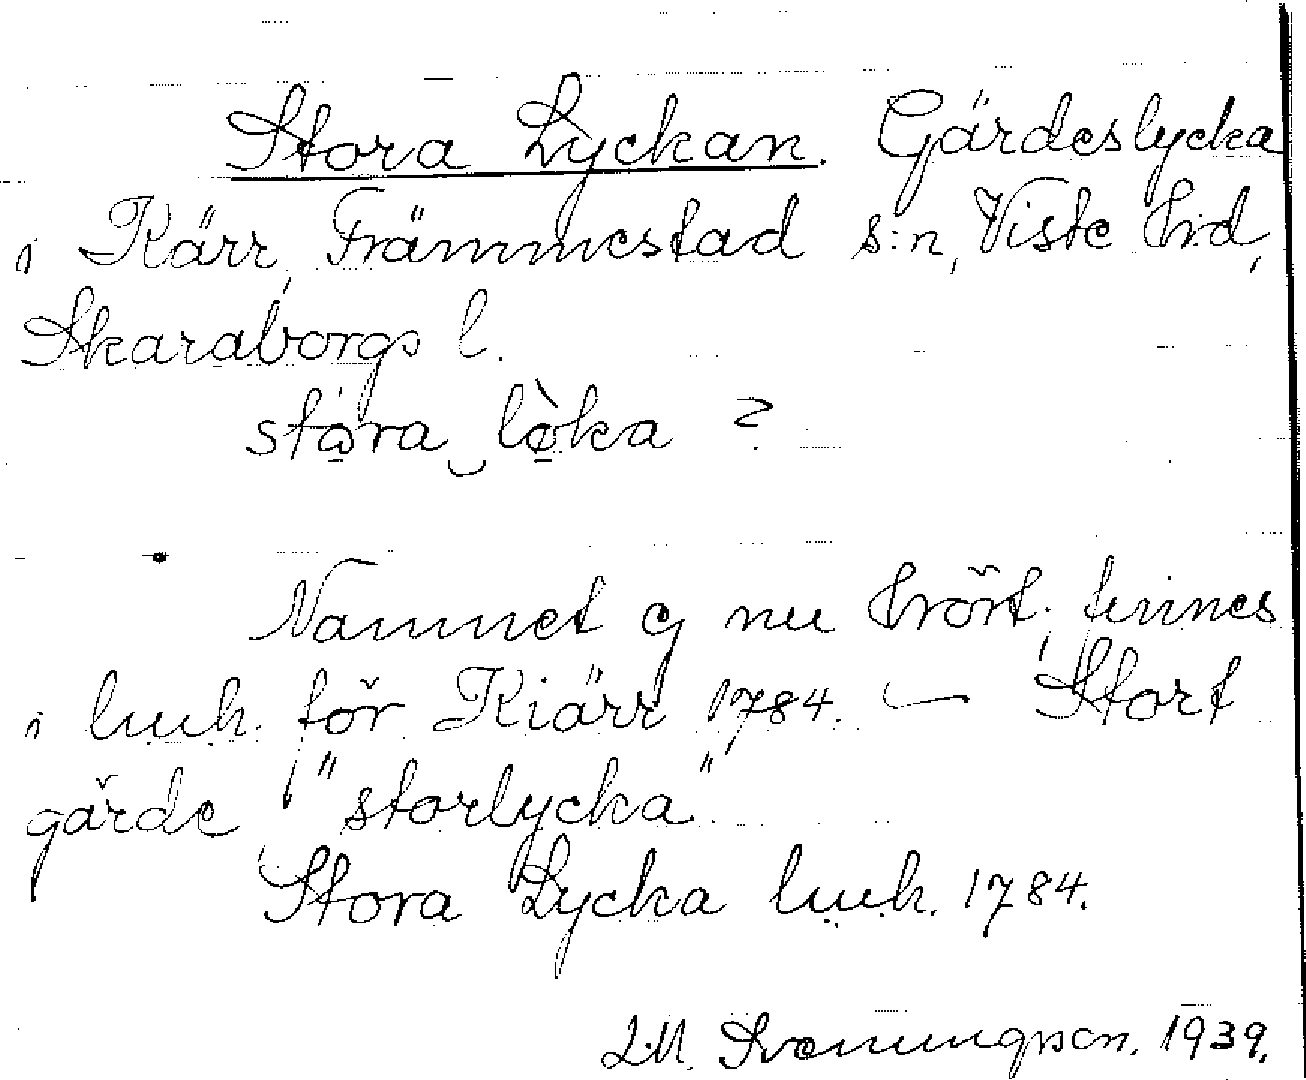 Stora Lyckan. Gärdeslycka
i Kärr, Främmestad s:n, Viste hrd,
Skaraborgs l.
stora löka ?
Namnet ej nu hört, finnes
i luuh. för Kiärr 1784. — Stort
gärde, "storlycka".
Stora Lycka luuh. 1784.
L.M. Svenungsson. 1939.